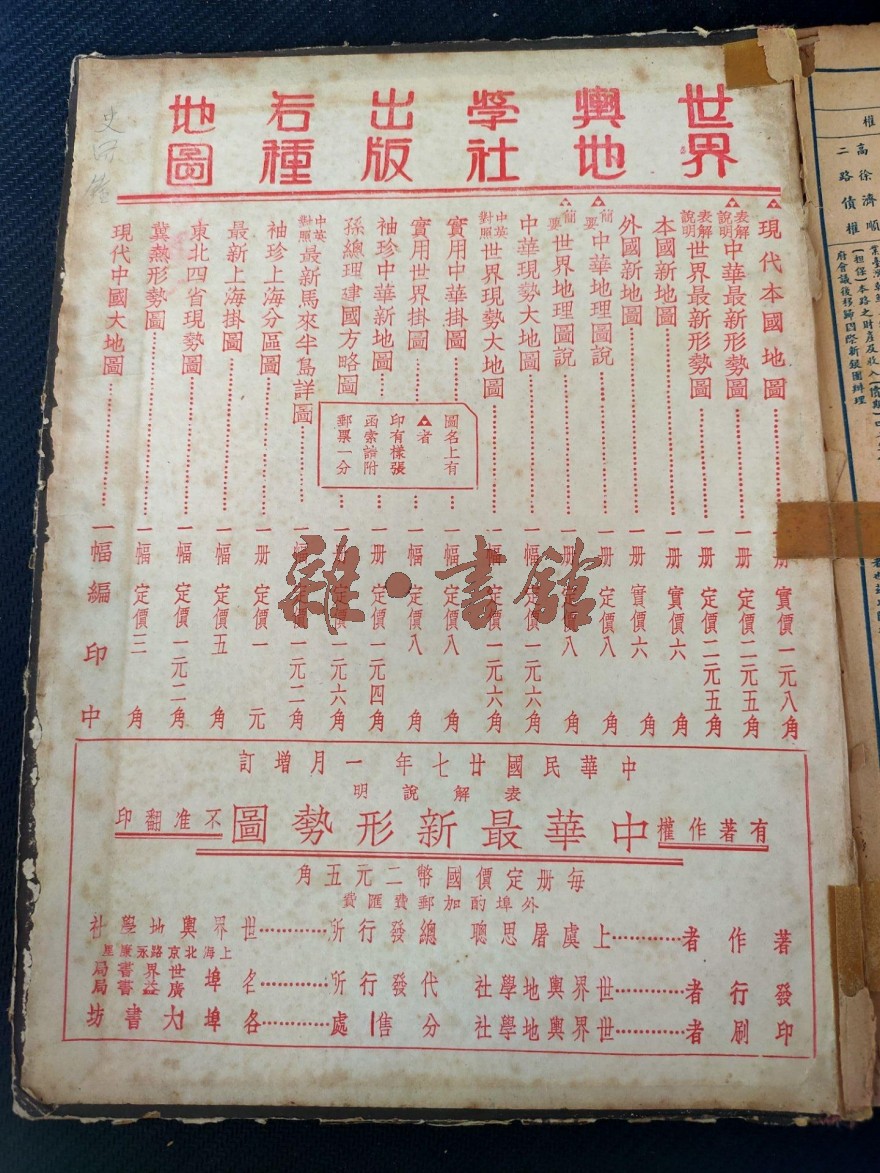 世界輿地學社出版各種地圖
▲現代本國地圖……一册 實價一元八角
▲表解說明中華最新形勢圖……一册 定價二元五角
表解說明世界最新形勢圖……一册 定價二元五角
本國新地圖……一册 實價六角
外國新地圖……一册 實價六角
▲簡要中華地理圖說……一册 定價八角
▲簡要世界地理圖說……一册 定價八角
中華現勢大地圖……一幅 定價一元六角
中英對照世界現勢大地圖……一幅 一元六角
實用中華掛圖……一幅 定價八角
實用世界掛圖……一幅 定價八角
袖珍中華新地圖……一册 定價一元四角
孫總理建國方略圖……一册 定價一元六角
中英對照最新馬來半島詳圖……一幅 定價一元二角
袖珍上海分區圖……一册 定價一元
最新上海掛圖……一幅 定價五角
東北四省現勢圖……一幅 定價一元二角
冀熱形勢圖……一幅 定價三角
現代中國大地圖……一幅編印中
圖名上有
▲者
印有樣張
函索請附
郵票一分
雜·書館
中華民國廿七年一月增訂
表解說明
有著作權 中華最新形勢圖 不准翻印
每册定價國幣二元五角
外埠酌加郵費匯費
著作者……上虞屠思聰
發行者……世界輿地學社
印刷者……世界輿地學社
總發行所……世界輿地學社
上海北京路永康里
代發行所……各埠 世界書局 廣益書局
分售處……各埠大書坊
權
高徐濟順
二路債權
府會議後移歸國際新銀團辦理